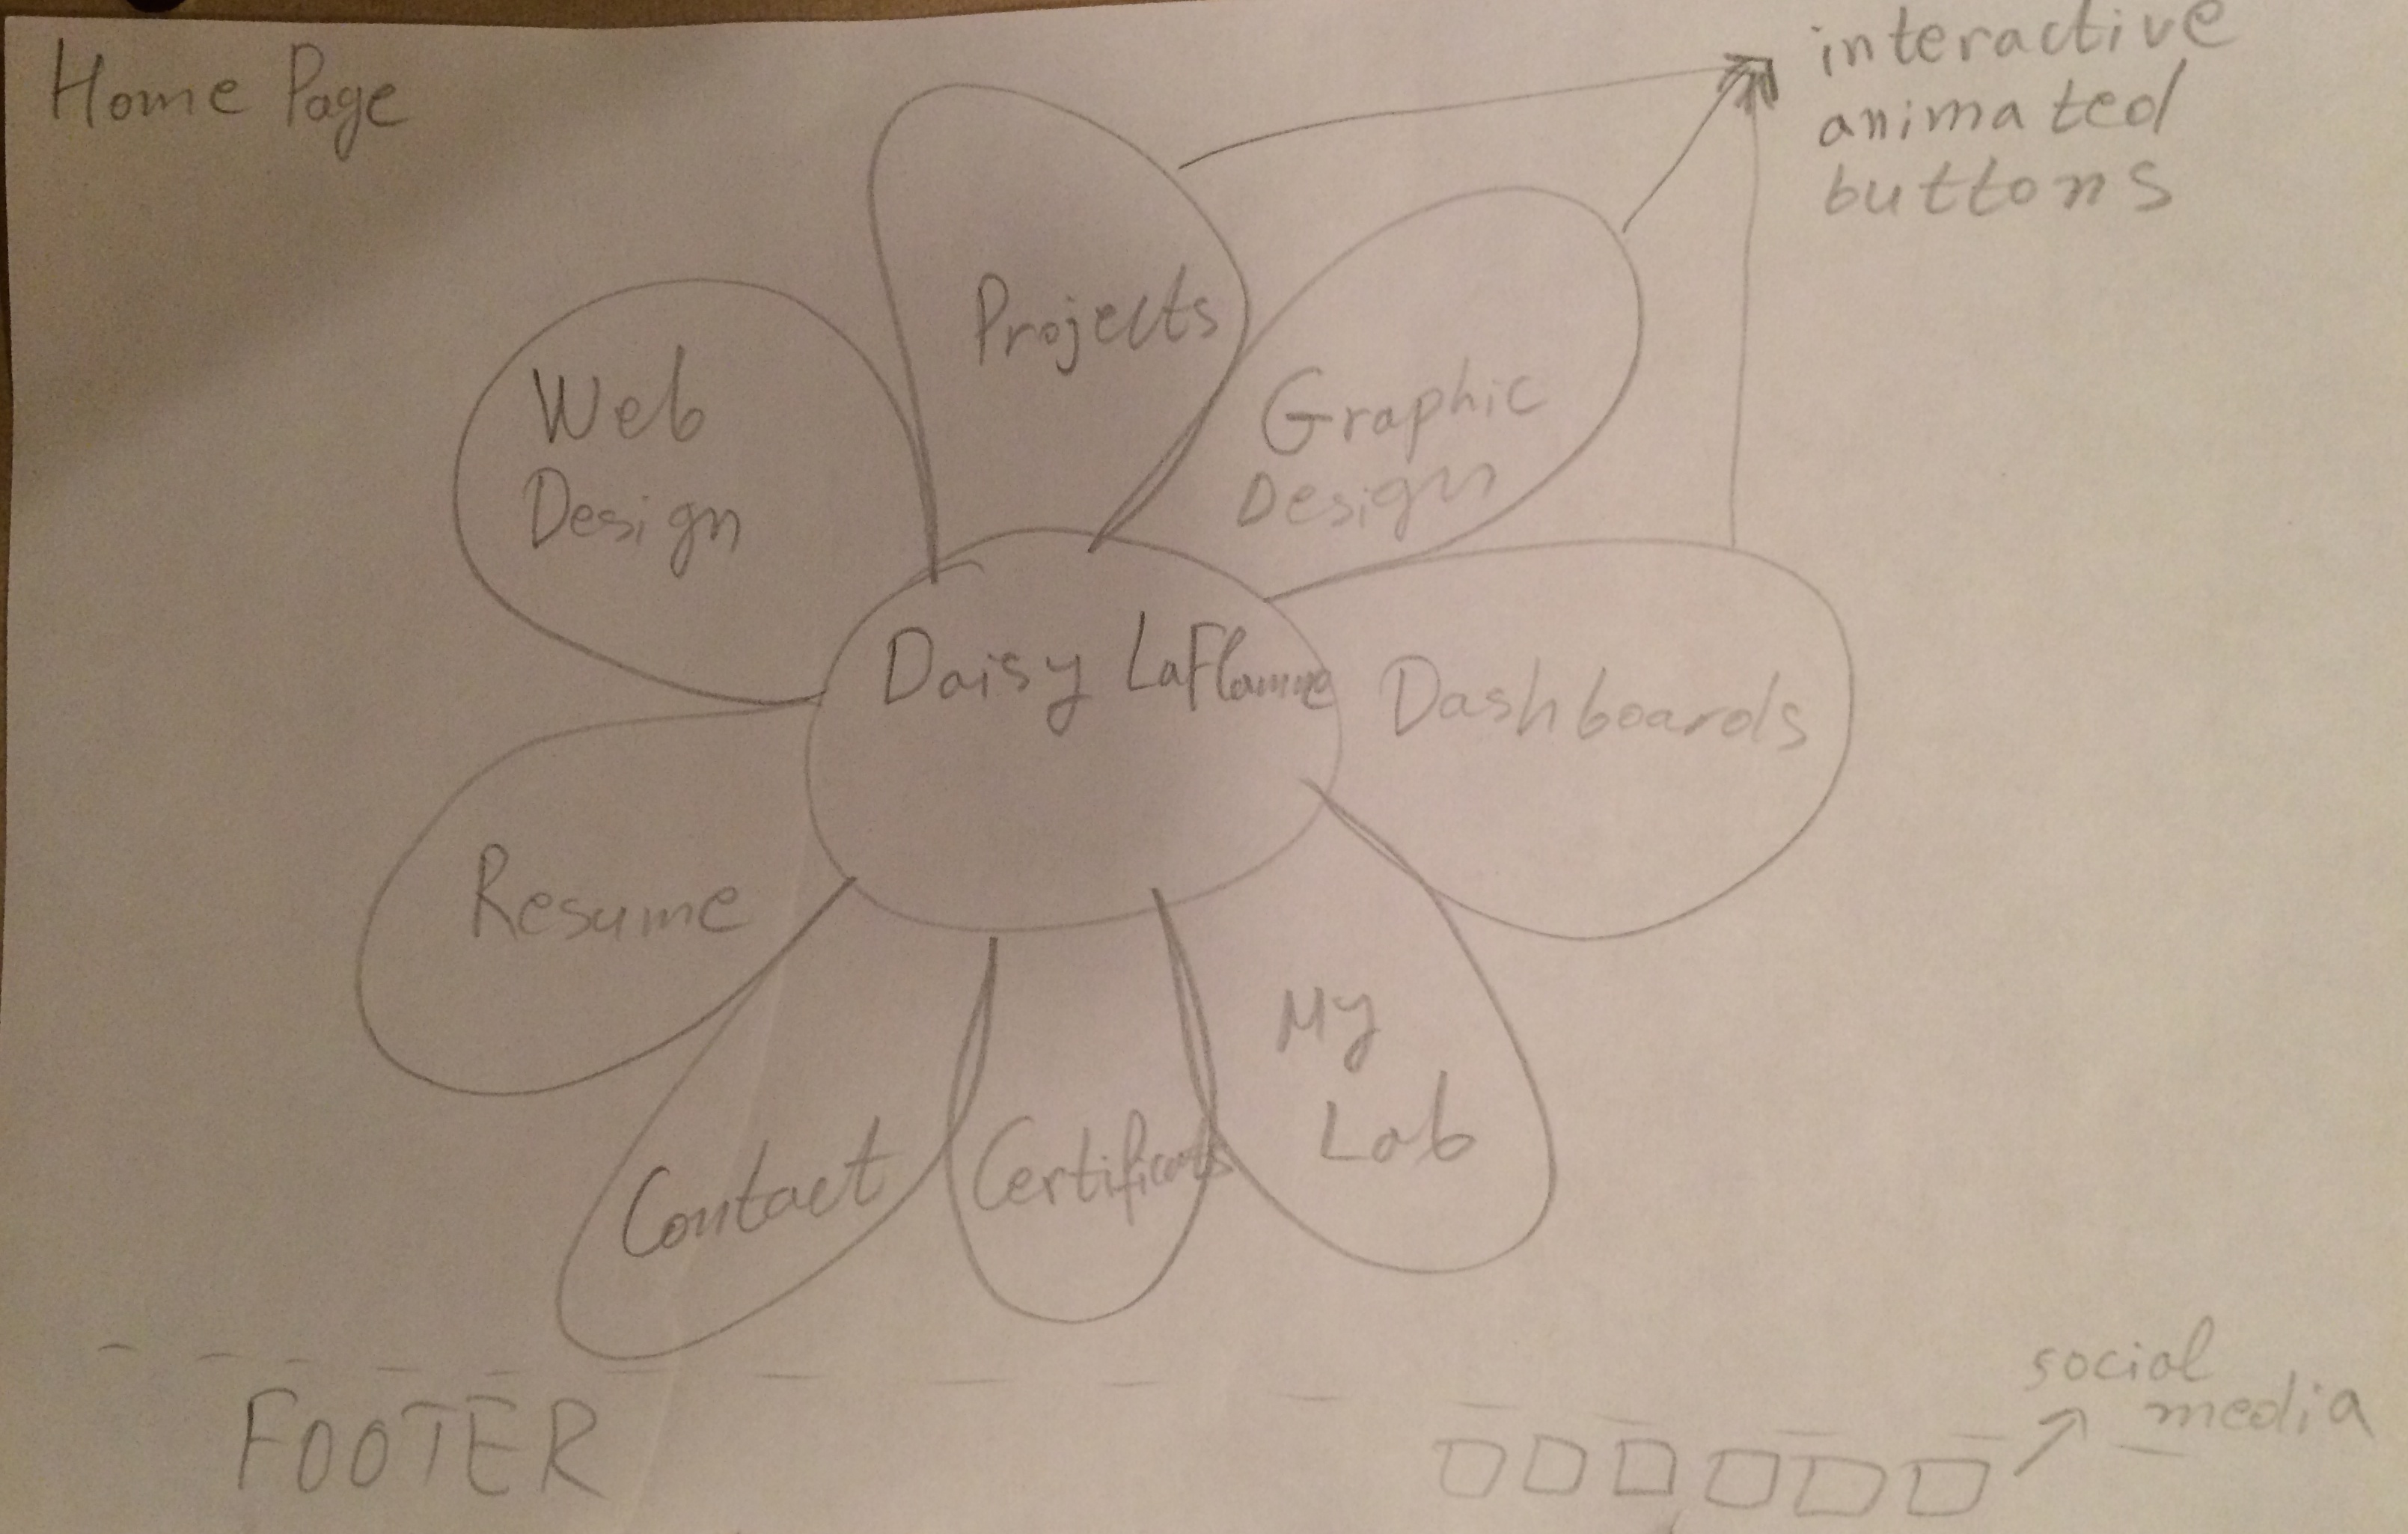 Home Page
interactive
animated
buttons
Projects
Web
Design
Graphic
Design
Daisy LaFlamme
Dashboards
Resume
My
Lab
Contact
Certificats
social
media
FOOTER